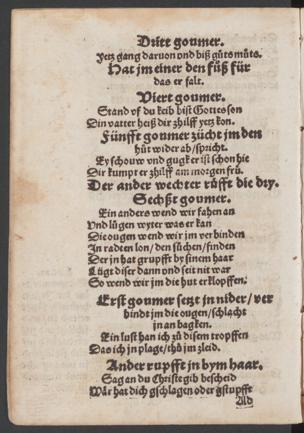 Dritt goumer.
Yetz gang daruon vnd biß gůts můts.
Hat jm einer den fůß für
das er falt.
Viert goumer.
Stand vf du keib bist Gottes son
Din vatter heißt dir zhilff yetz kon.
Fünfft goumer zücht jm den
hůt wider ab / spricht.
Ey schouw vnd gugk er ist schon hie
Dir kumpt er zhilff am morgen frů.
Der ander wechter rüfft die dry.
Sechßt goumer.
Ein anders wend wir fahen an
Vnd lůgen wyter was er kan
Die ougen wend wir jm verbinden
In radten lon / den sůchen / finden
Der jn hat grupfft by sinem haar
Lůgt diser dann vnd seit nit war
So wend wir jm die hut erklopffen.
Erst goumer setzt jn nider / ver
bindt jm die ougen / schlacht
jn an bagken.
Ein lust han ich zů disem tropffen
Das ich jn plage / thů jm zleid.
Ander rupfft jn bym haar.
Sag an du Christe gib bescheid
Wär hat dich gschlagen oder gstupfft
Ald